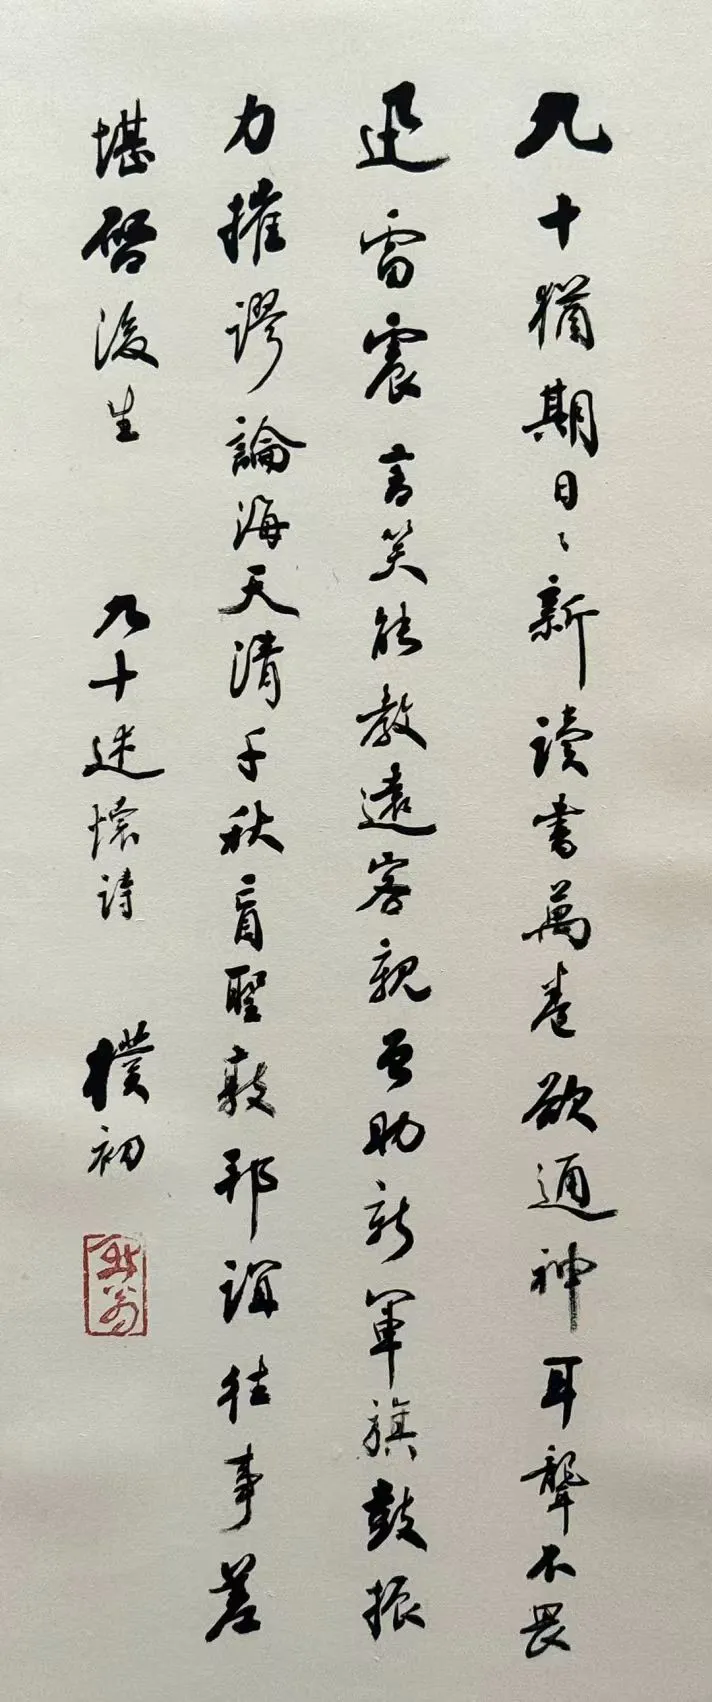 九十猶期日〻新读書萬卷欲通神耳聾不畏
迅雷震言笑能教遠客親曾助新軍旗鼓振
力摧謬論海天清千秋盲聖敦邦誼往事差
堪啓後生　九十述懷詩　樸初